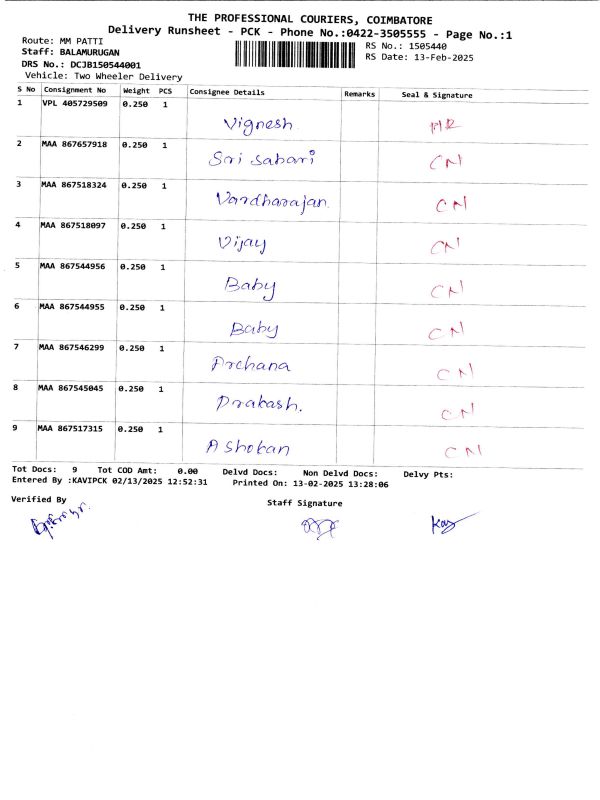 THE PROFESSIONAL COURIERS, COIMBATORE
Delivery Runsheet - PCK - Phone No.:0422-3505555 - Page No.:1
Route: MM PATTI RS No.: 1505440
Staff: BALAMURUGAN RS Date: 13-Feb-2025
DRS No.: DCJB150544001
Vehicle: Two Wheeler Delivery
S No Consignment No Weight PCS Consignee Details Remarks Seal & Signature
1 VPL 405729509 0.250 1
Vignesh
2 MAA 867657918 0.250 1
Sri Sabari CN
3 MAA 867518324 0.250 1
Vardharajan CN
4 MAA 867518097 0.250 1
Vijay CN
5 MAA 867544956 0.250 1
Baby CN
6 MAA 867544955 0.250 1
Baby CN
7 MAA 867546299 0.250 1
Archana CN
8 MAA 867545045 0.250 1
Prakash. CN
9 MAA 867517315 0.250 1
Ashokan CN
Tot Docs: 9 Tot COD Amt: 0.00 Delvd Docs: Non Delvd Docs: Delvy Pts:
Entered By :KAVIPCK 02/13/2025 12:52:31 Printed On: 13-02-2025 13:28:06
Verified By Staff Signature